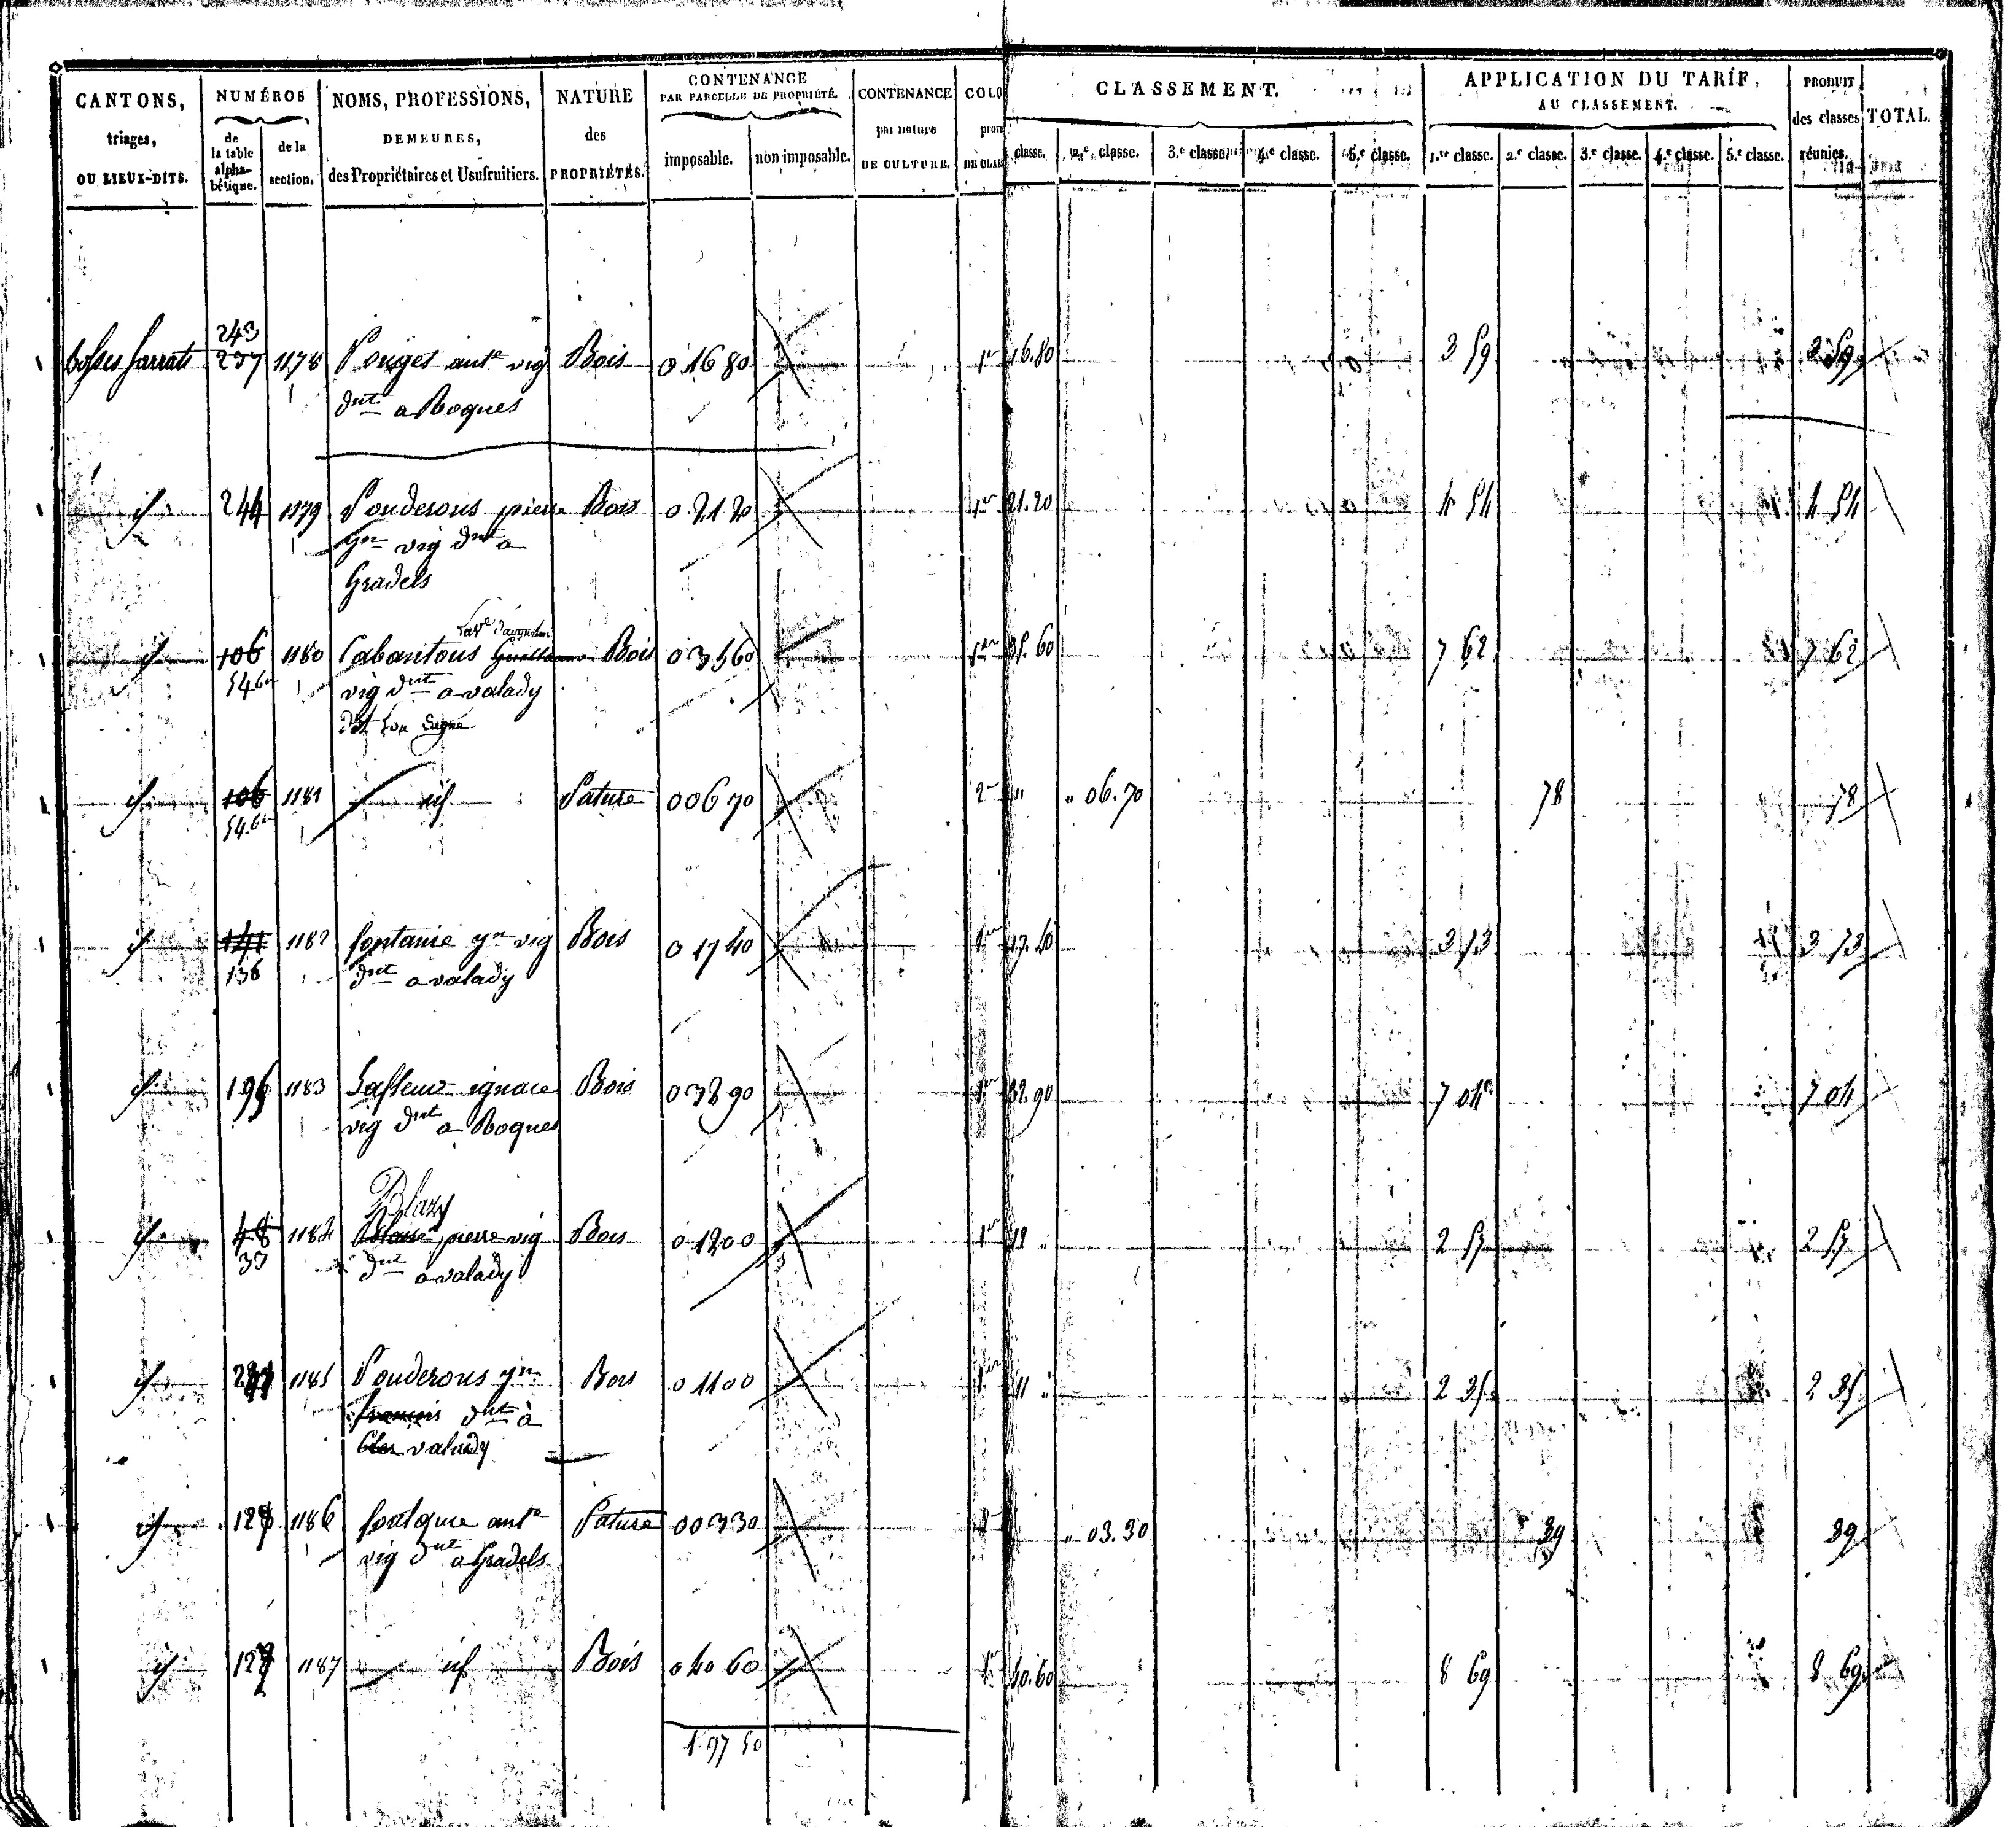 CANTONS,
triages,
OU LIEUX-DITS.
NUMÉROS
de
la table
alpha-
bétique.
de la
section.
NOMS, PROFESSIONS,
DEMEURES,
des Propriétaires et Usufruitiers.
NATURE
des
PROPRIÉTÉS.
CONTENANCE
PAR PARCELLE DE PROPRIÉTÉ.
imposable.
non imposable.
CONTENANCE
par nature
DE CULTURE.
COLO
DE CLAS
CLASSEMENT.
classe.
2.e classe.
3.e classe.
4.e classe.
5.e classe.
APPLICATION DU TARIF,
AU CLASSEMENT.
1.re classe.
2.e classe.
3.e classe.
4.e classe.
5.e classe.
PRODUIT
des classes
réunies.
TOTAL.
243
237 1178 Pouges ante vig Bois 0 16 80 1er 16.80 3 59 3 59
dnt a Roques
id 244 1179 Pouderous pierre Bois 0 21 20 1er 21.20 4 54 4 54
Gn vig dnt a
Gradels
id 106 1180 Cabantous Bois 0 35 60 1er 35.60 7 62 7 62
546 vig dnt a valady
id 106 1181 id Pature 0 06 70 2e " " 06.70 78 78
546
id 141 1182 fontanie jn vig Bois 0 17 40 1er 17.40 3 73 3 73
136 dnt a valady
id 196 1183 Lafleur ignace Bois 0 32 90 1er 32.90 7 04 7 04
vig dnt a Roques
Blazy
id 48 1184 pierre vig Bois 0 12 00 1er 12 " 2 57 2 57
33 dnt a valady
id 1185 Pouderous jn Bois 0 11 00 1er 11 " 2 35 2 35
francois dnt à
valady
id 127 1186 foulquie ante Pature 0 03 30 2e " 03.30 39 39
vig dnt a Gradels
id 127 1187 id Bois 0 40 60 1er 40.60 8 69 8 69
1.97 50